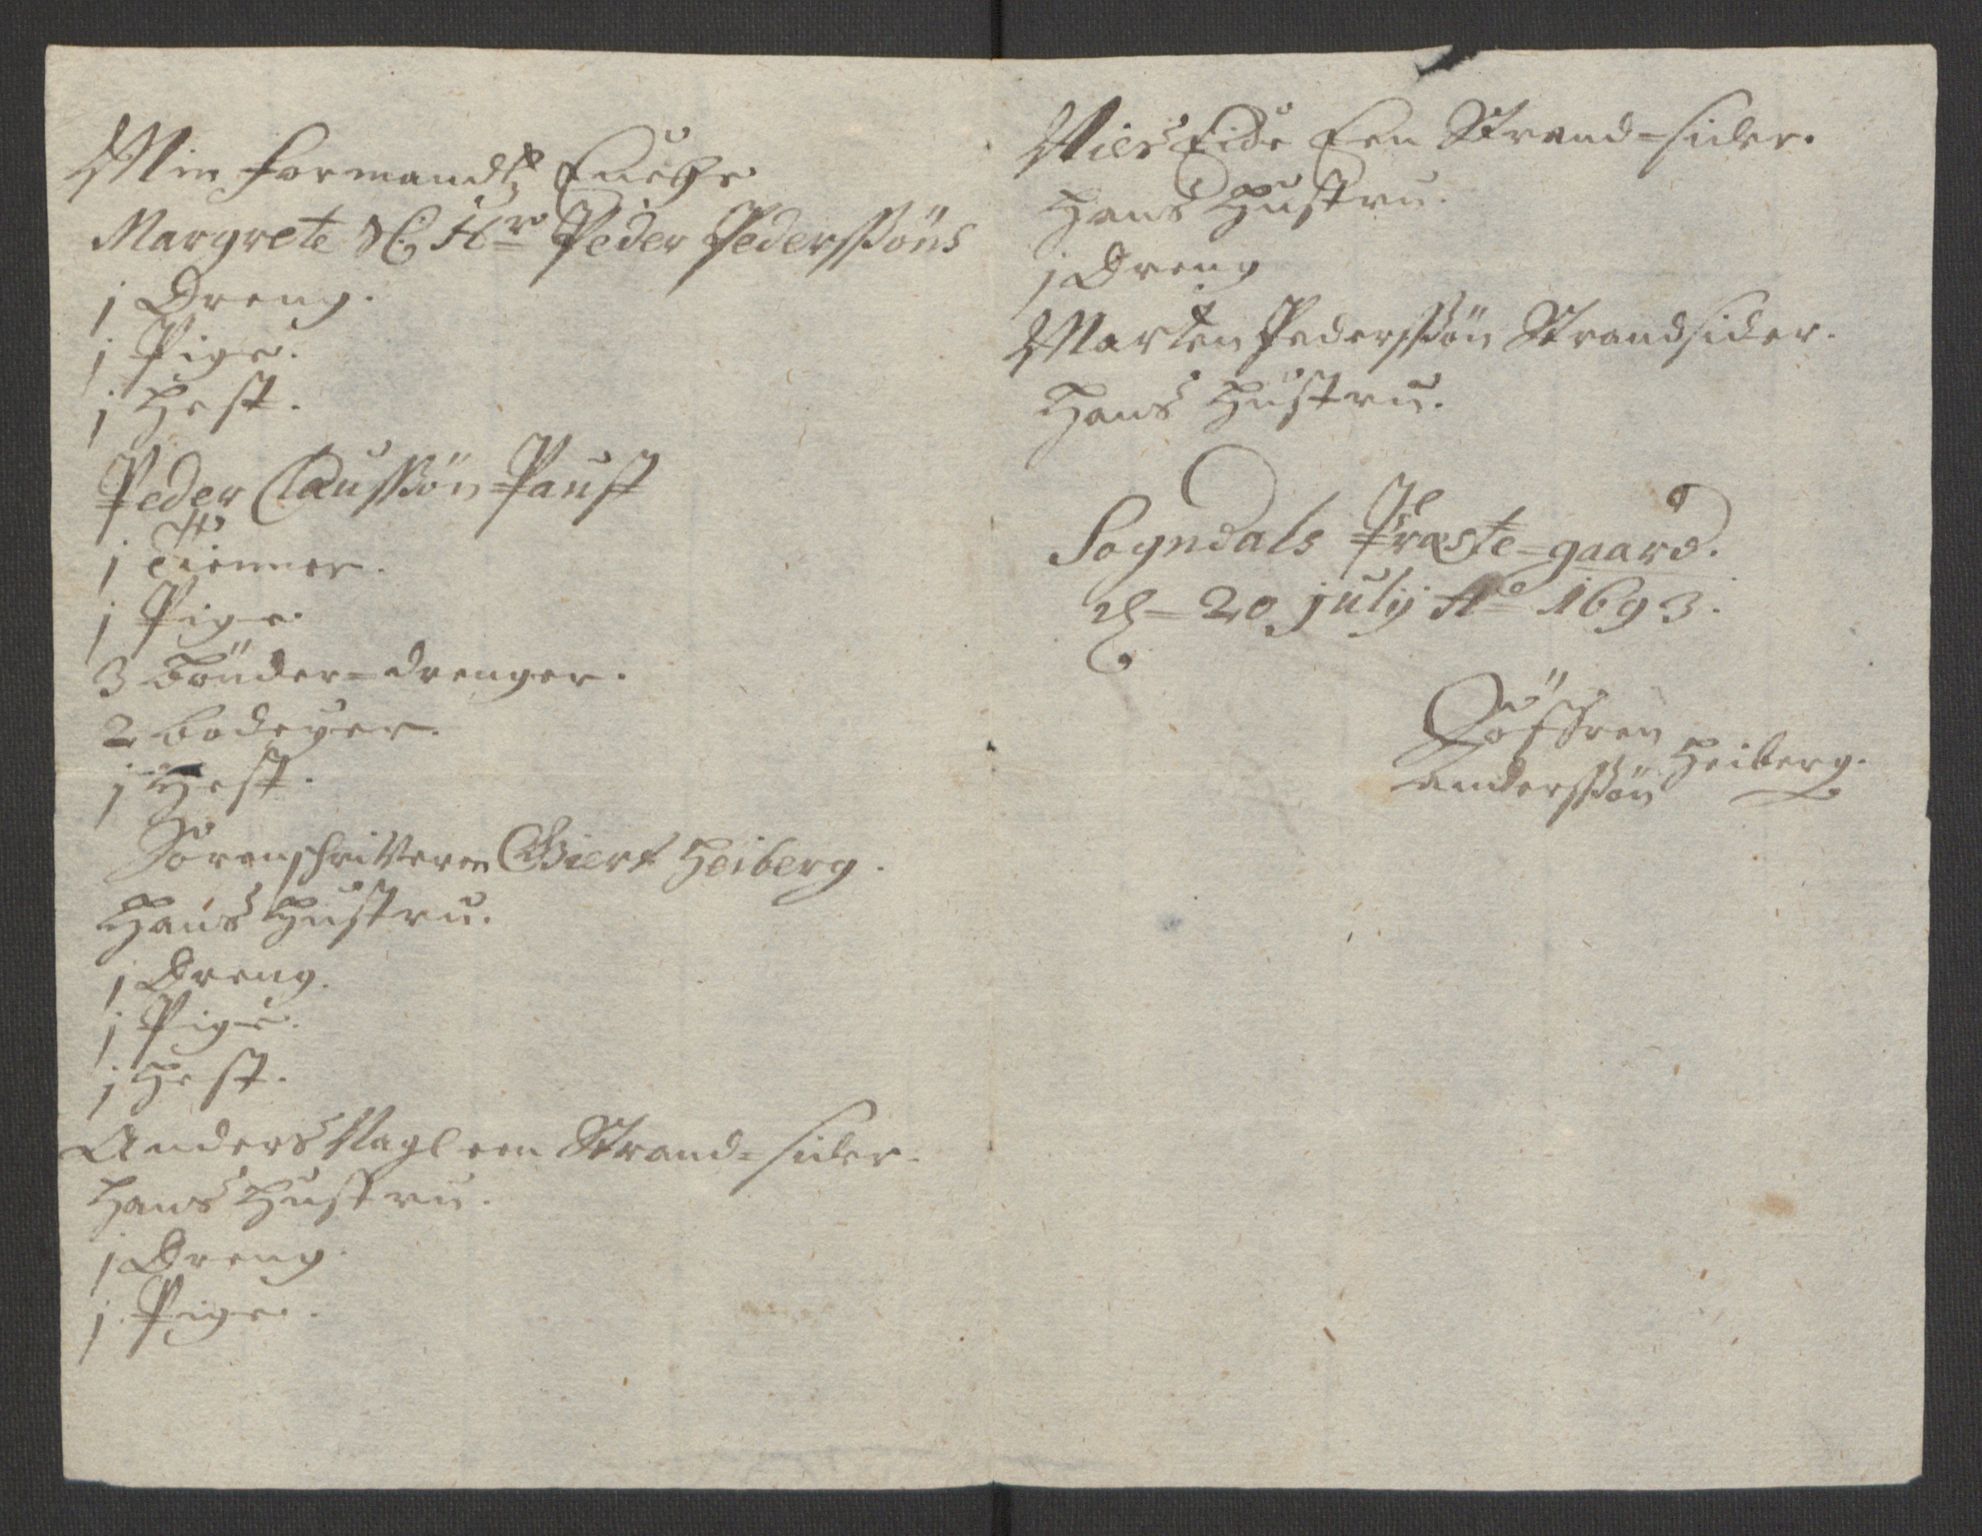 Min formandtz Encke
Margrete Sl. Hr Peder Pederssøns
j Dreng.
j Pige.
j Hest.
Peder Claussøn Paust
j Tienner.
j Pige.
3 bønder=drenger.
2 bodeyer.
j Hest.
Sorenschriveren Giert Heiberg.
Hans Hustru.
j Dreng.
j Pige.
j Hest.
Anders Nagl een Strand=sider.
Hans Hustru.
j Dreng.
j Pige.
Niels Eide Een Strand=sider.
Hans Hustru.
j Dreng
Marten Pederssøn Strandsider.
Hans Hustru.
Sogndals Præste=gaard.
d. 20 julij Ao 1693.
Søfren
Anderssøn Heiberg.